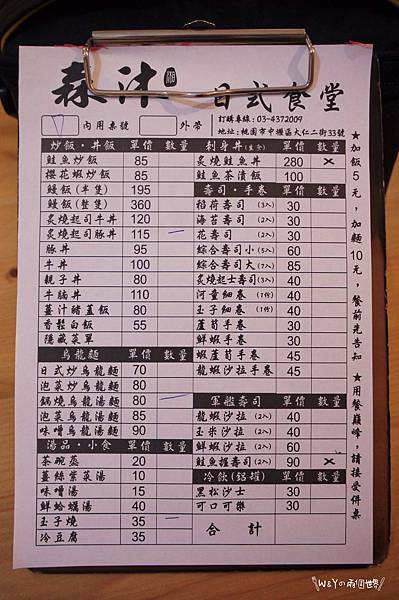 森汁 日式食堂
訂購專線:03-4372009
地址:桃園市中壢區大仁二街33號
內用桌號 外帶
炒飯、丼飯 單價 數量
鮭魚炒飯 85
櫻花蝦炒飯 85
鰻飯(半隻) 195
鰻飯(整隻) 360
炙燒起司牛丼 120
炙燒起司豚丼 115
豚丼 95
牛丼 100
親子丼 80
牛腩丼 110
薑汁豬蓋飯 80
香鬆白飯 55
隱藏菜單
烏龍麵 單價 數量
日式炒烏龍麵 70
泡菜炒烏龍麵 80
鍋燒烏龍湯麵 80
泡菜烏龍湯麵 85
味噌烏龍湯麵 90
湯品、小食 單價 數量
茶碗蒸 20
薑絲紫菜湯 10
味噌湯 15
鮮蛤蠣湯 40
玉子燒 35
冷豆腐 35
刺身丼(生食) 單價 數量
炙燒鮭魚丼 280 ×
鮭魚茶漬飯 100
壽司、手卷 單價 數量
稻荷壽司(3入) 30
海苔壽司(2入) 30
花壽司(2入) 30
綜合壽司小(5入) 60
綜合壽司大(7入) 85
炙燒起士壽司(3入) 40
河童細卷(1條) 40
玉子細卷(1條) 40
蘆筍手卷 30
鮮蝦手卷 30
蝦蘆筍手卷 45
龍蝦沙拉手卷 45
軍艦壽司 單價 數量
龍蝦沙拉(2入) 40
玉米沙拉(2入) 40
鮮蝦沙拉(2入) 60
鮭魚握壽司(2入) 90 ×
冷飲(鋁罐) 單價 數量
黑松沙士 30
可口可樂 30
合計
★加飯5元,加麵10元,餐前先告知 ★用餐巔峰,請接受併桌
W&Yの兩個世界